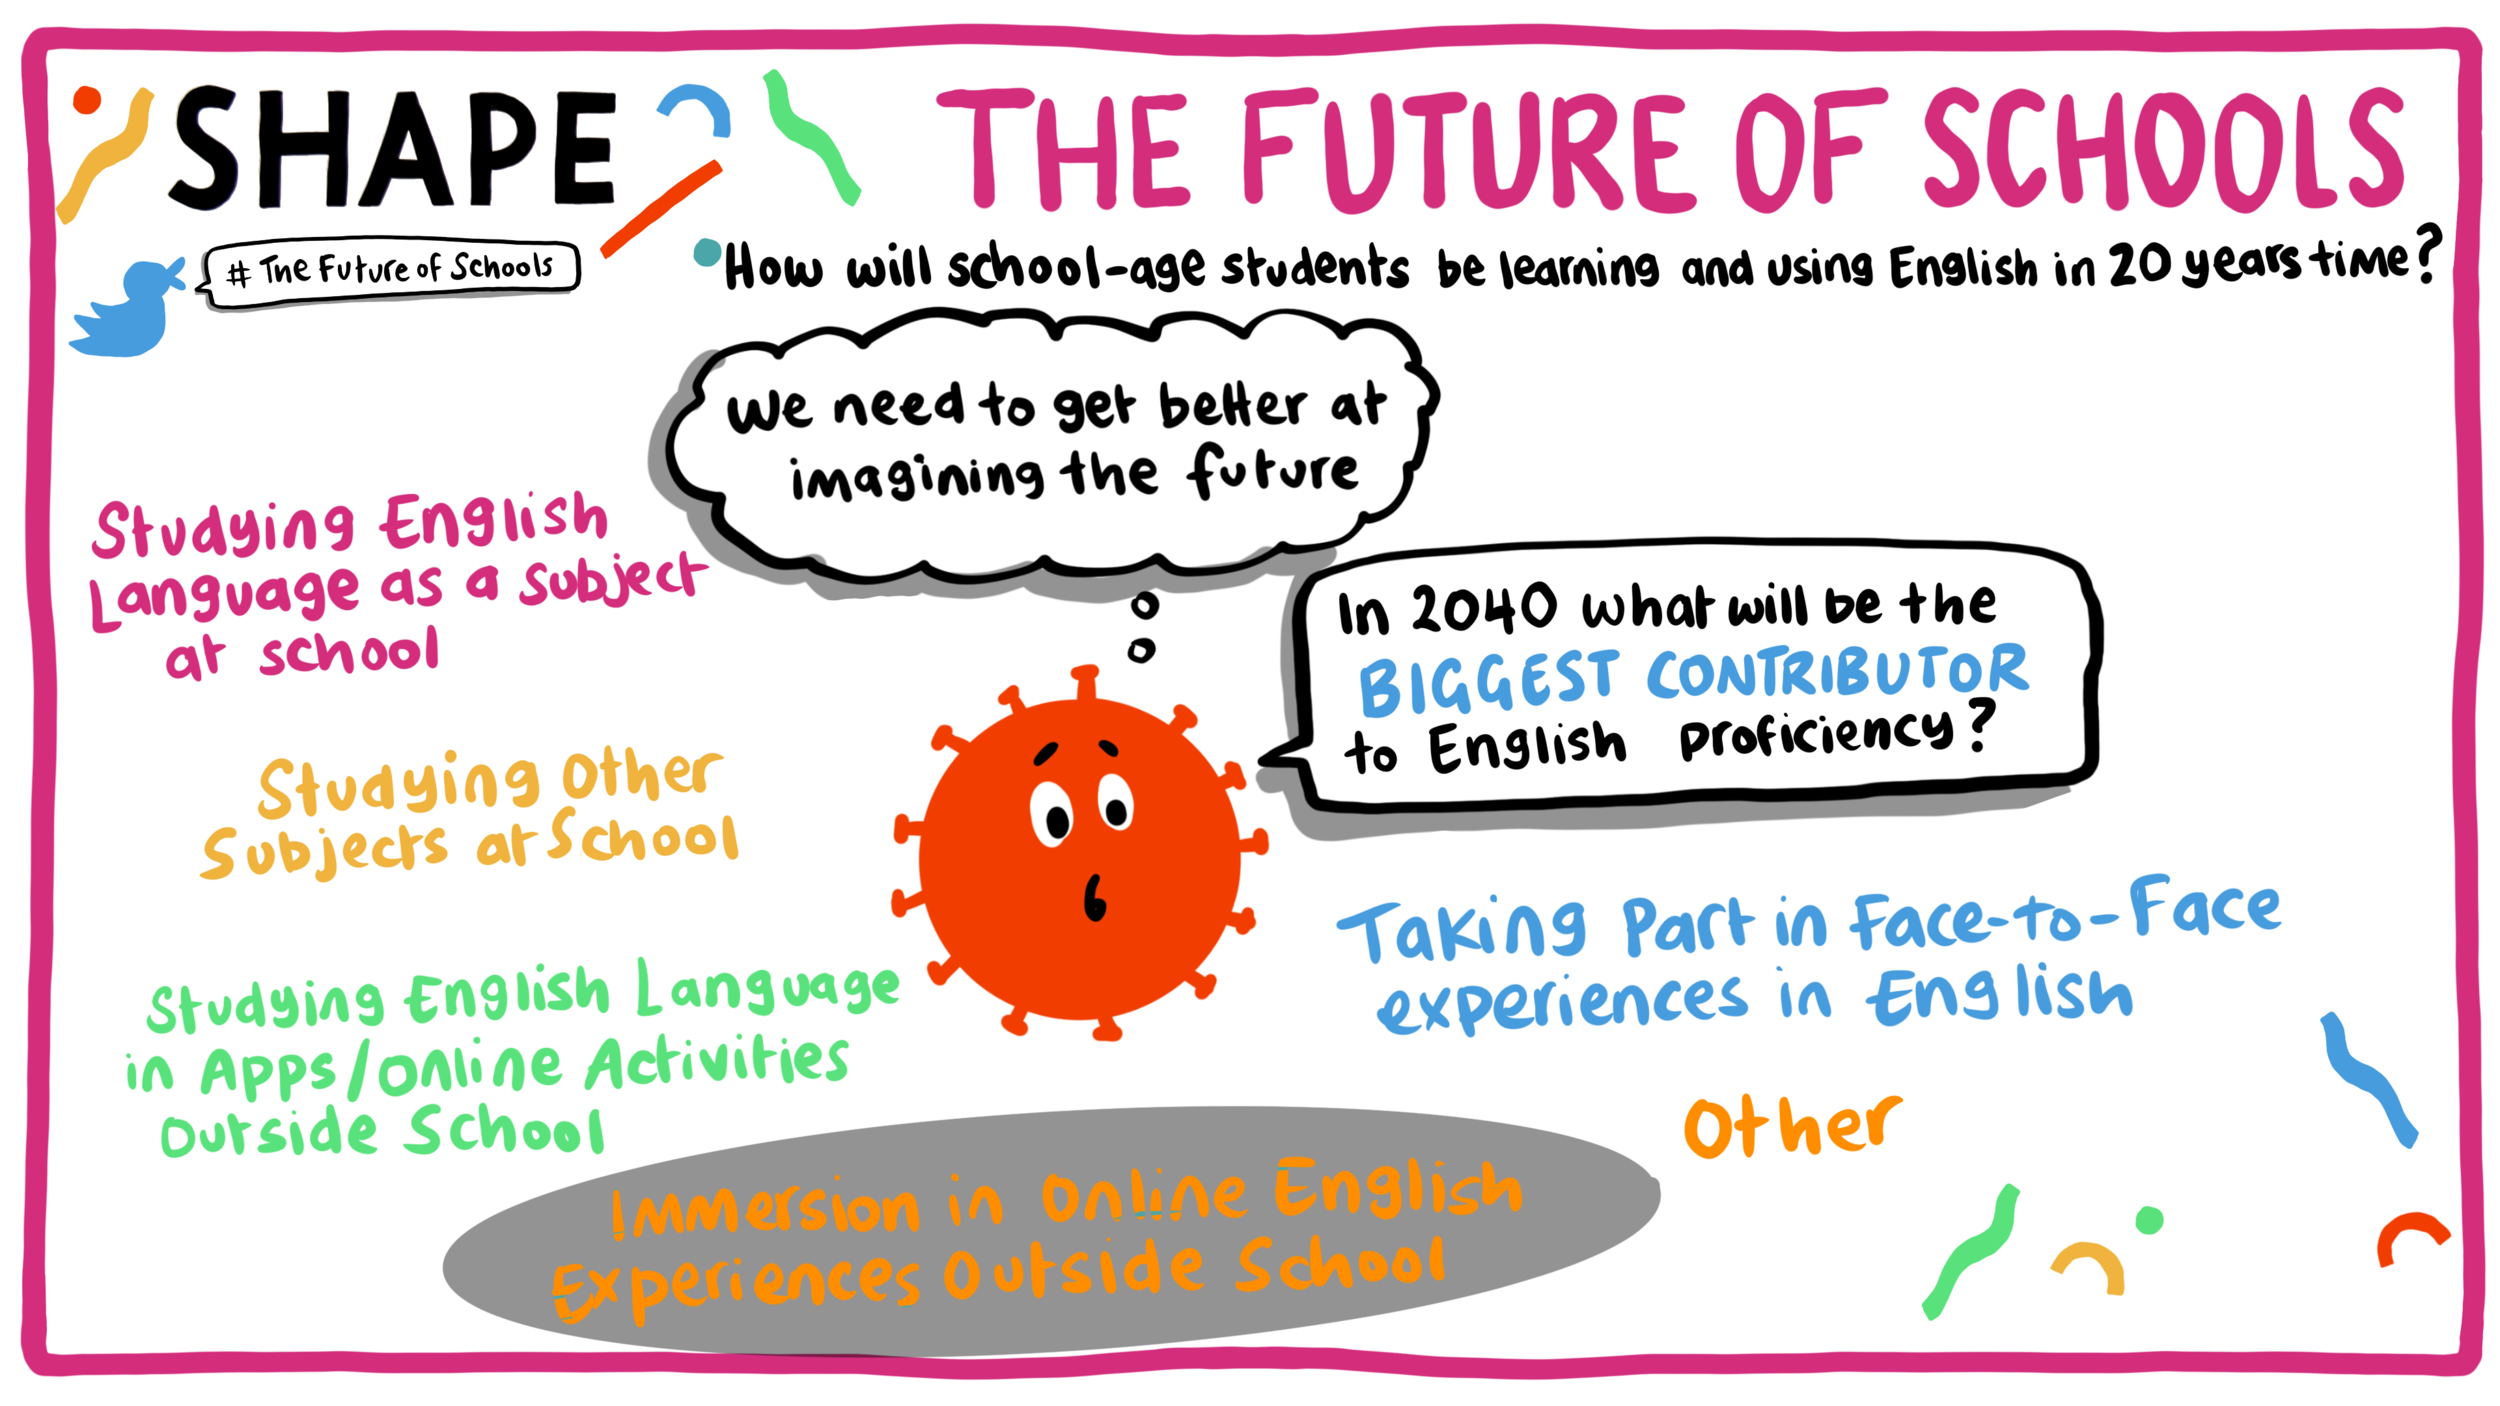 SHAPE
THE FUTURE OF SCHOOLS
# The Future of Schools
How will school-age students be learning and using English in 20 years time?
We need to get better at
imagining the future
In 2040 what will be the
BIGGEST CONTRIBUTOR
to English proficiency?
Studying English
Language as a subject
at school
Studying Other
Subjects at School
Studying English Language
in Apps/Online Activities
Outside School
Taking Part in Face-To-Face
experiences in English
Other
Immersion in Online English
Experiences Outside School